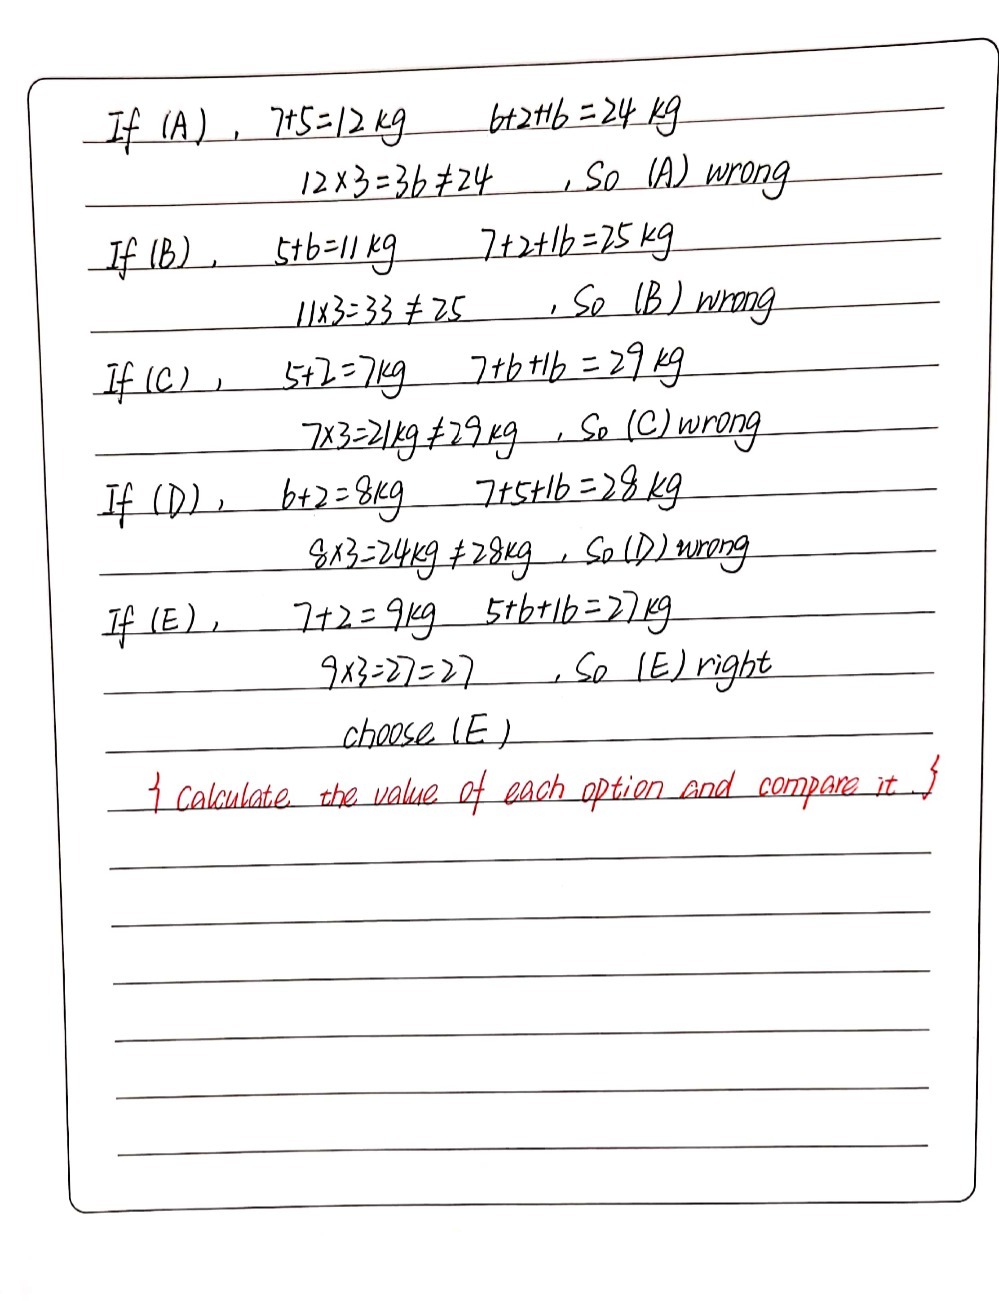 If (A), 7+5=12 kg 6+2+16=24 kg
12×3=36≠24, So (A) wrong
If (B), 5+6=11 kg 7+2+16=25 kg
11×3=33≠25, So (B) wrong
If (C), 5+2=7kg 7+6+16=29 kg
7×3=21kg≠29kg, So (C) wrong
If (D), 6+2=8kg 7+5+16=28 kg
8×3=24kg≠28kg, So (D) wrong
If (E), 7+2=9kg 5+6+16=27kg
9×3=27=27, So (E) right
choose (E)
{ Calculate the value of each option and compare it. }